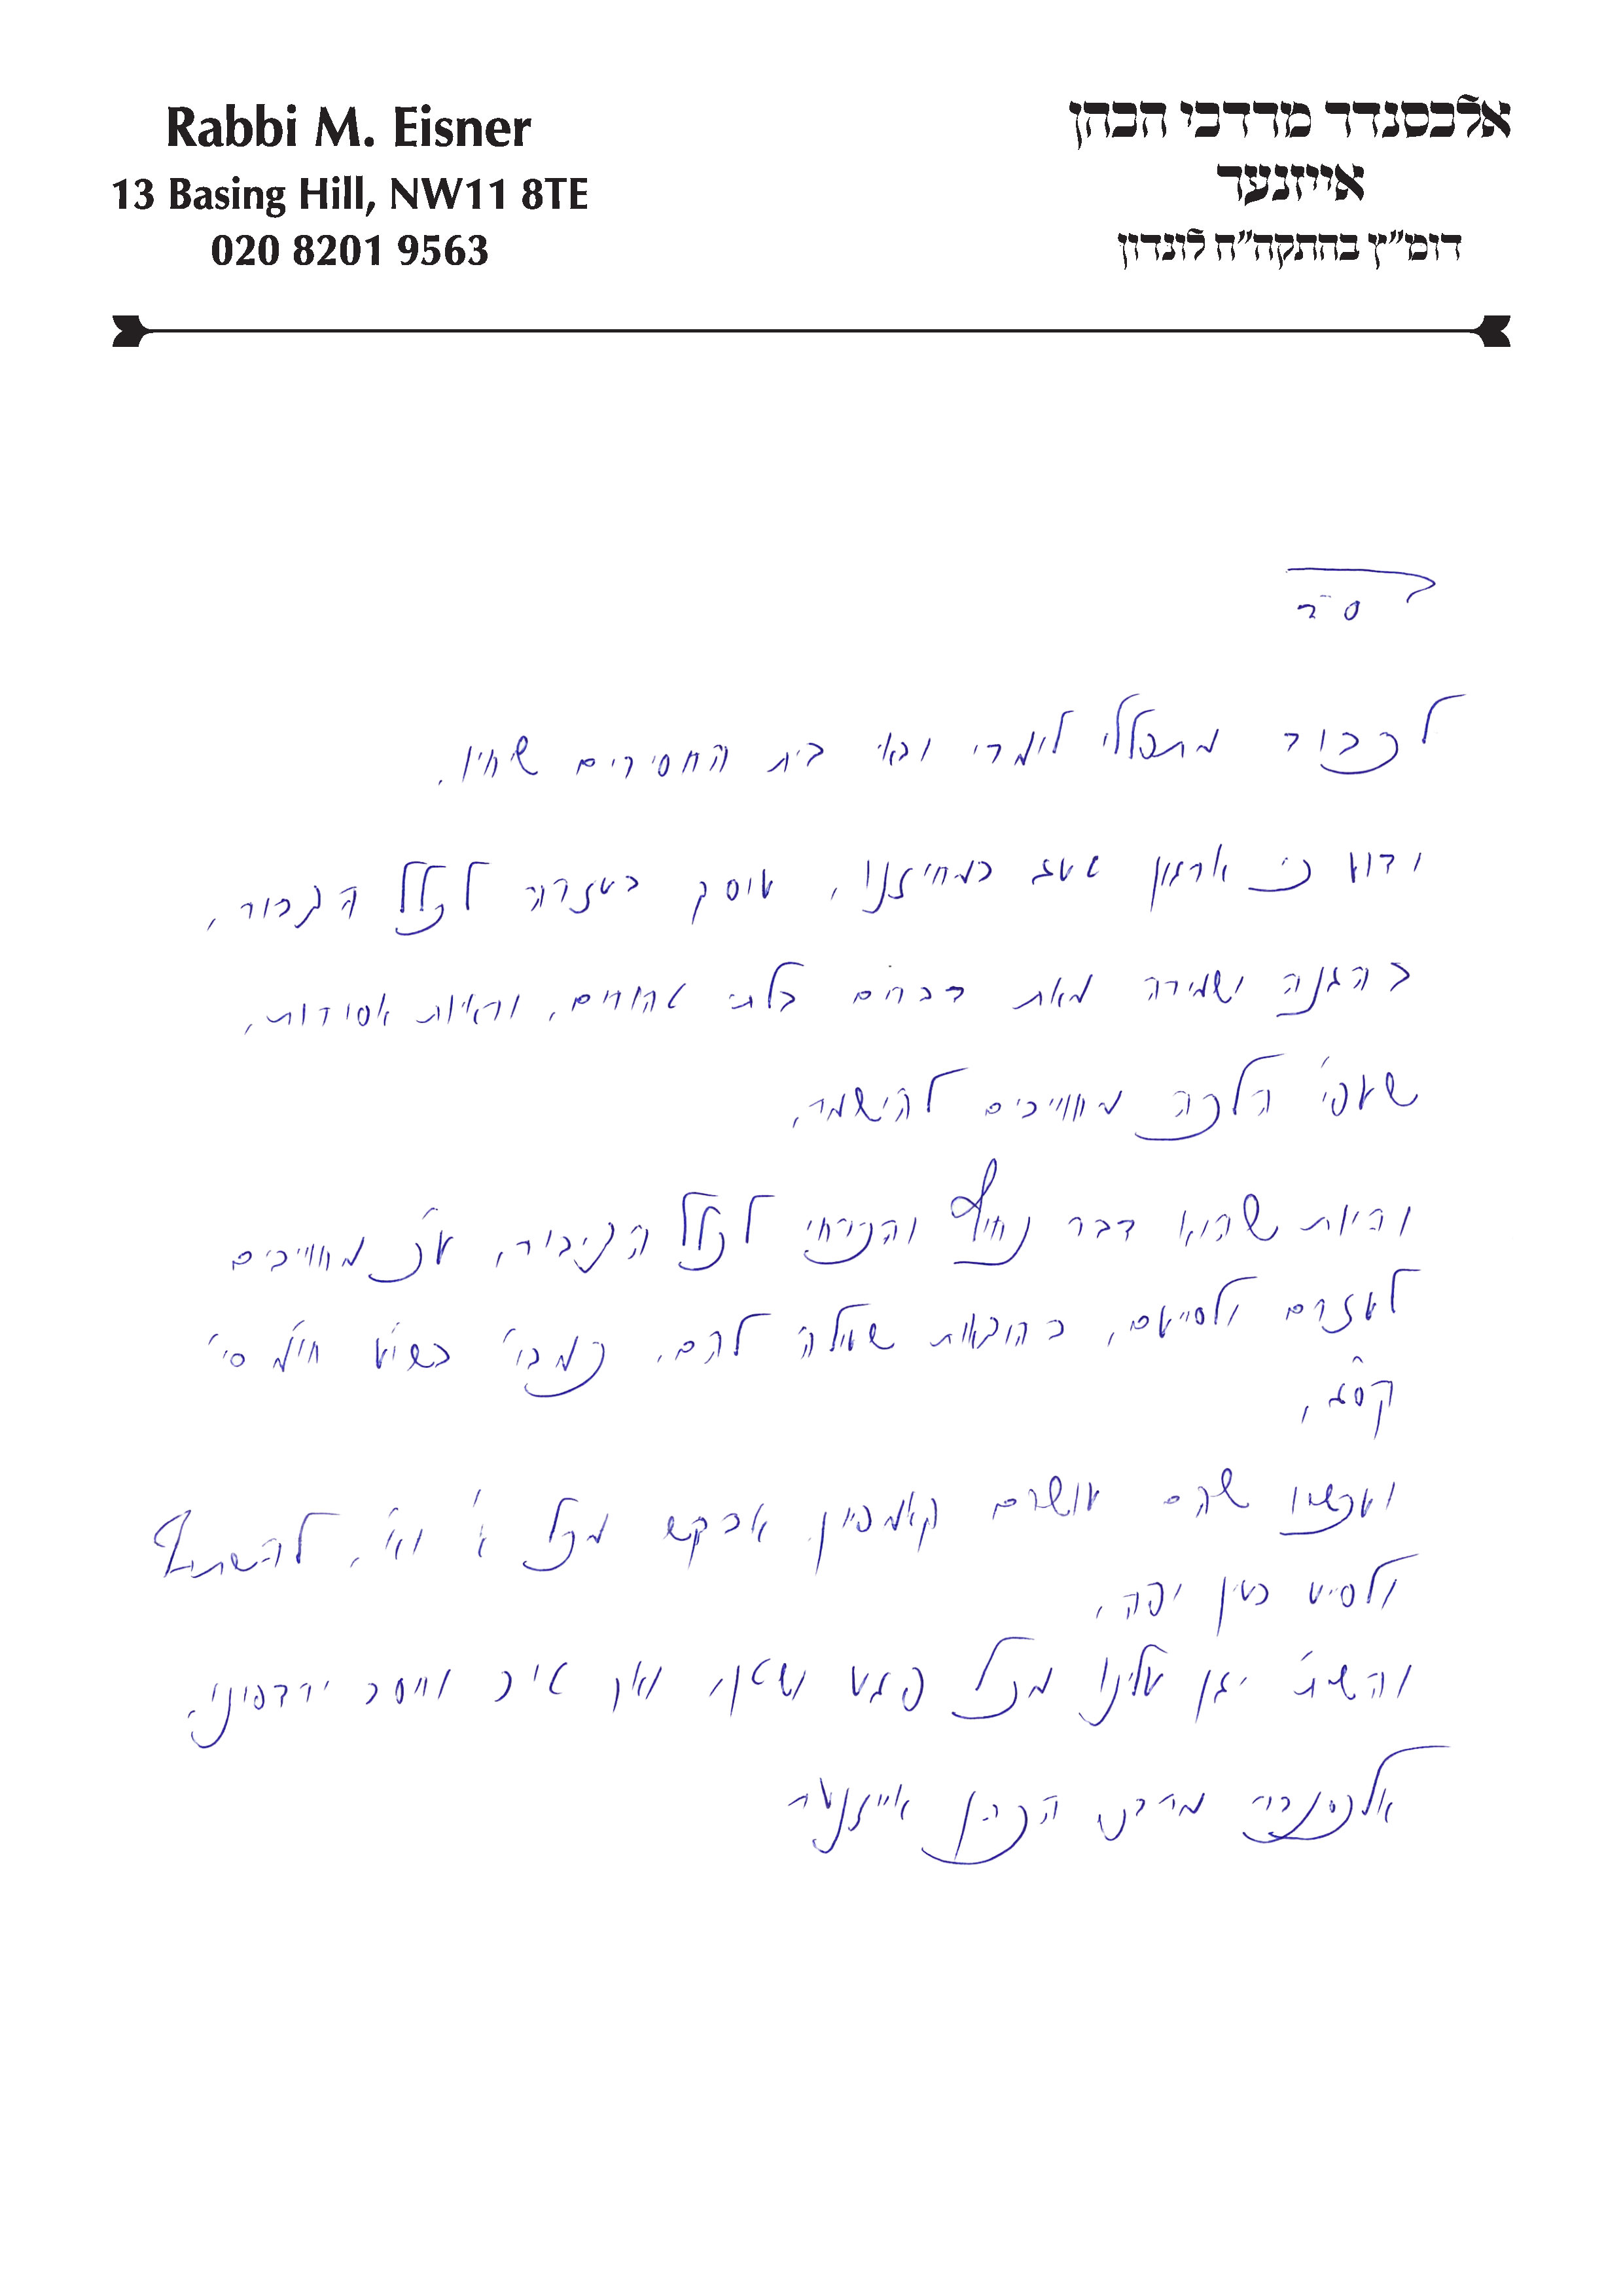 Rabbi M. Eisner
13 Basing Hill, NW11 8TE
020 8201 9563
אלכסנדר מרדכי הכהן
אייזנער
דומ"ץ בהתקה"ח לונדון
בס"ד
לכבוד מתפללי לומדי ובאי בית החסידים שיחיו.
ידוע כי ארגון טעג במחיצנו, עוסק בעזרה לכלל הציבור,
בהגנה ושמירה מאת דברים בלתי טהורים, וראיות אסורות,
שעפ"י הלכה מחוייבים להישמר,
והיות שהוא דבר נחוץ והכרחי לכלל הציבור, ע"כ מחוייבים
לעזרם ולסייעם, בהוצאות שעולה להם, כמבו' בשו"ע חו"מ סי'
קסג,
ועכשיו שהם עושים קאמפיין אבקש מכל א' וא', להשתתף
ולסייע בעין יפה,
והשי"ת יגן עלינו מכל פגע ושטן, ואך טוב וחסד ירדפוני,
אלכסנדר מרדכי הכהן אייזנער